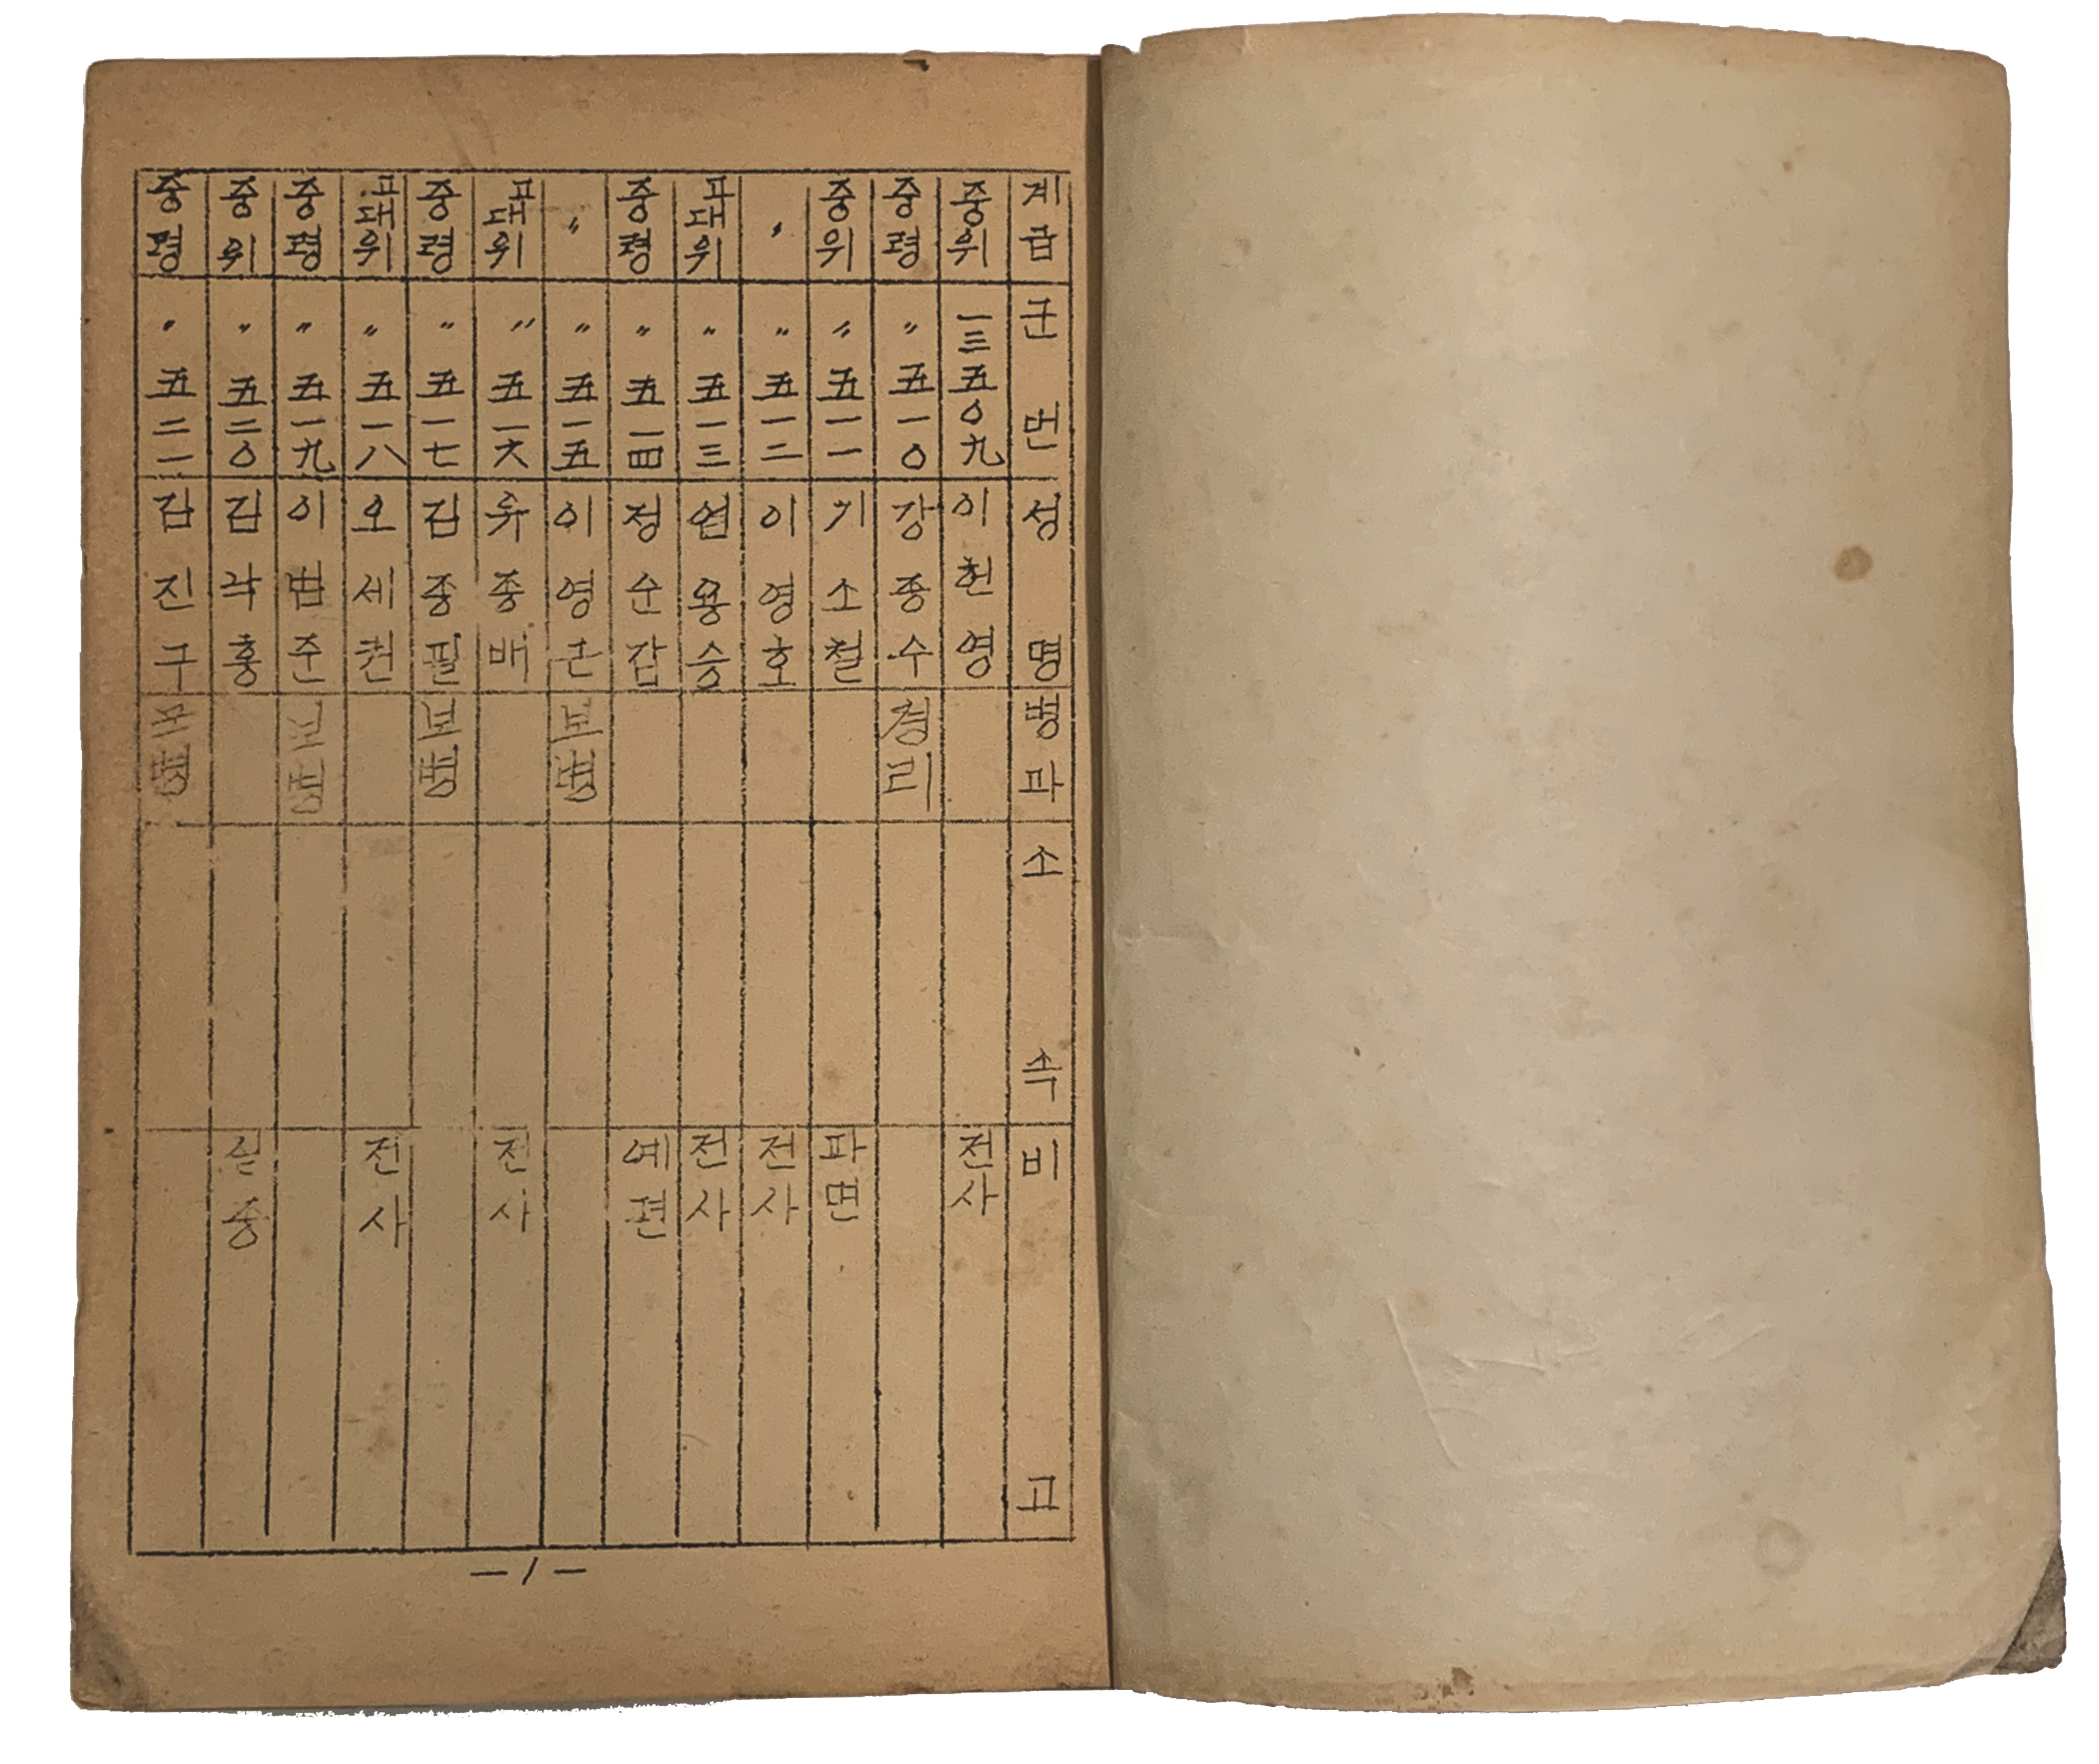 계급 군번 성명 병과 소속 비고
중위 一三五〇九 이헌영 전사
중령 〃五一〇 강종수 경리
중위 〃五一一 기소철 파면
〃 〃五一二 이영호 전사
고대위 〃五一三 염용승 전사
중령 〃五一四 정순갑 예편
〃 〃五一五 이영근 보병
고대위 〃五一六 유종배 전사
중령 〃五一七 김종필 보병
고대위 〃五一八 오세권 전사
중령 〃五一九 이범준 보병
중위 〃五二〇 김각홍 실종
중령 〃五二一 김진구
—1—